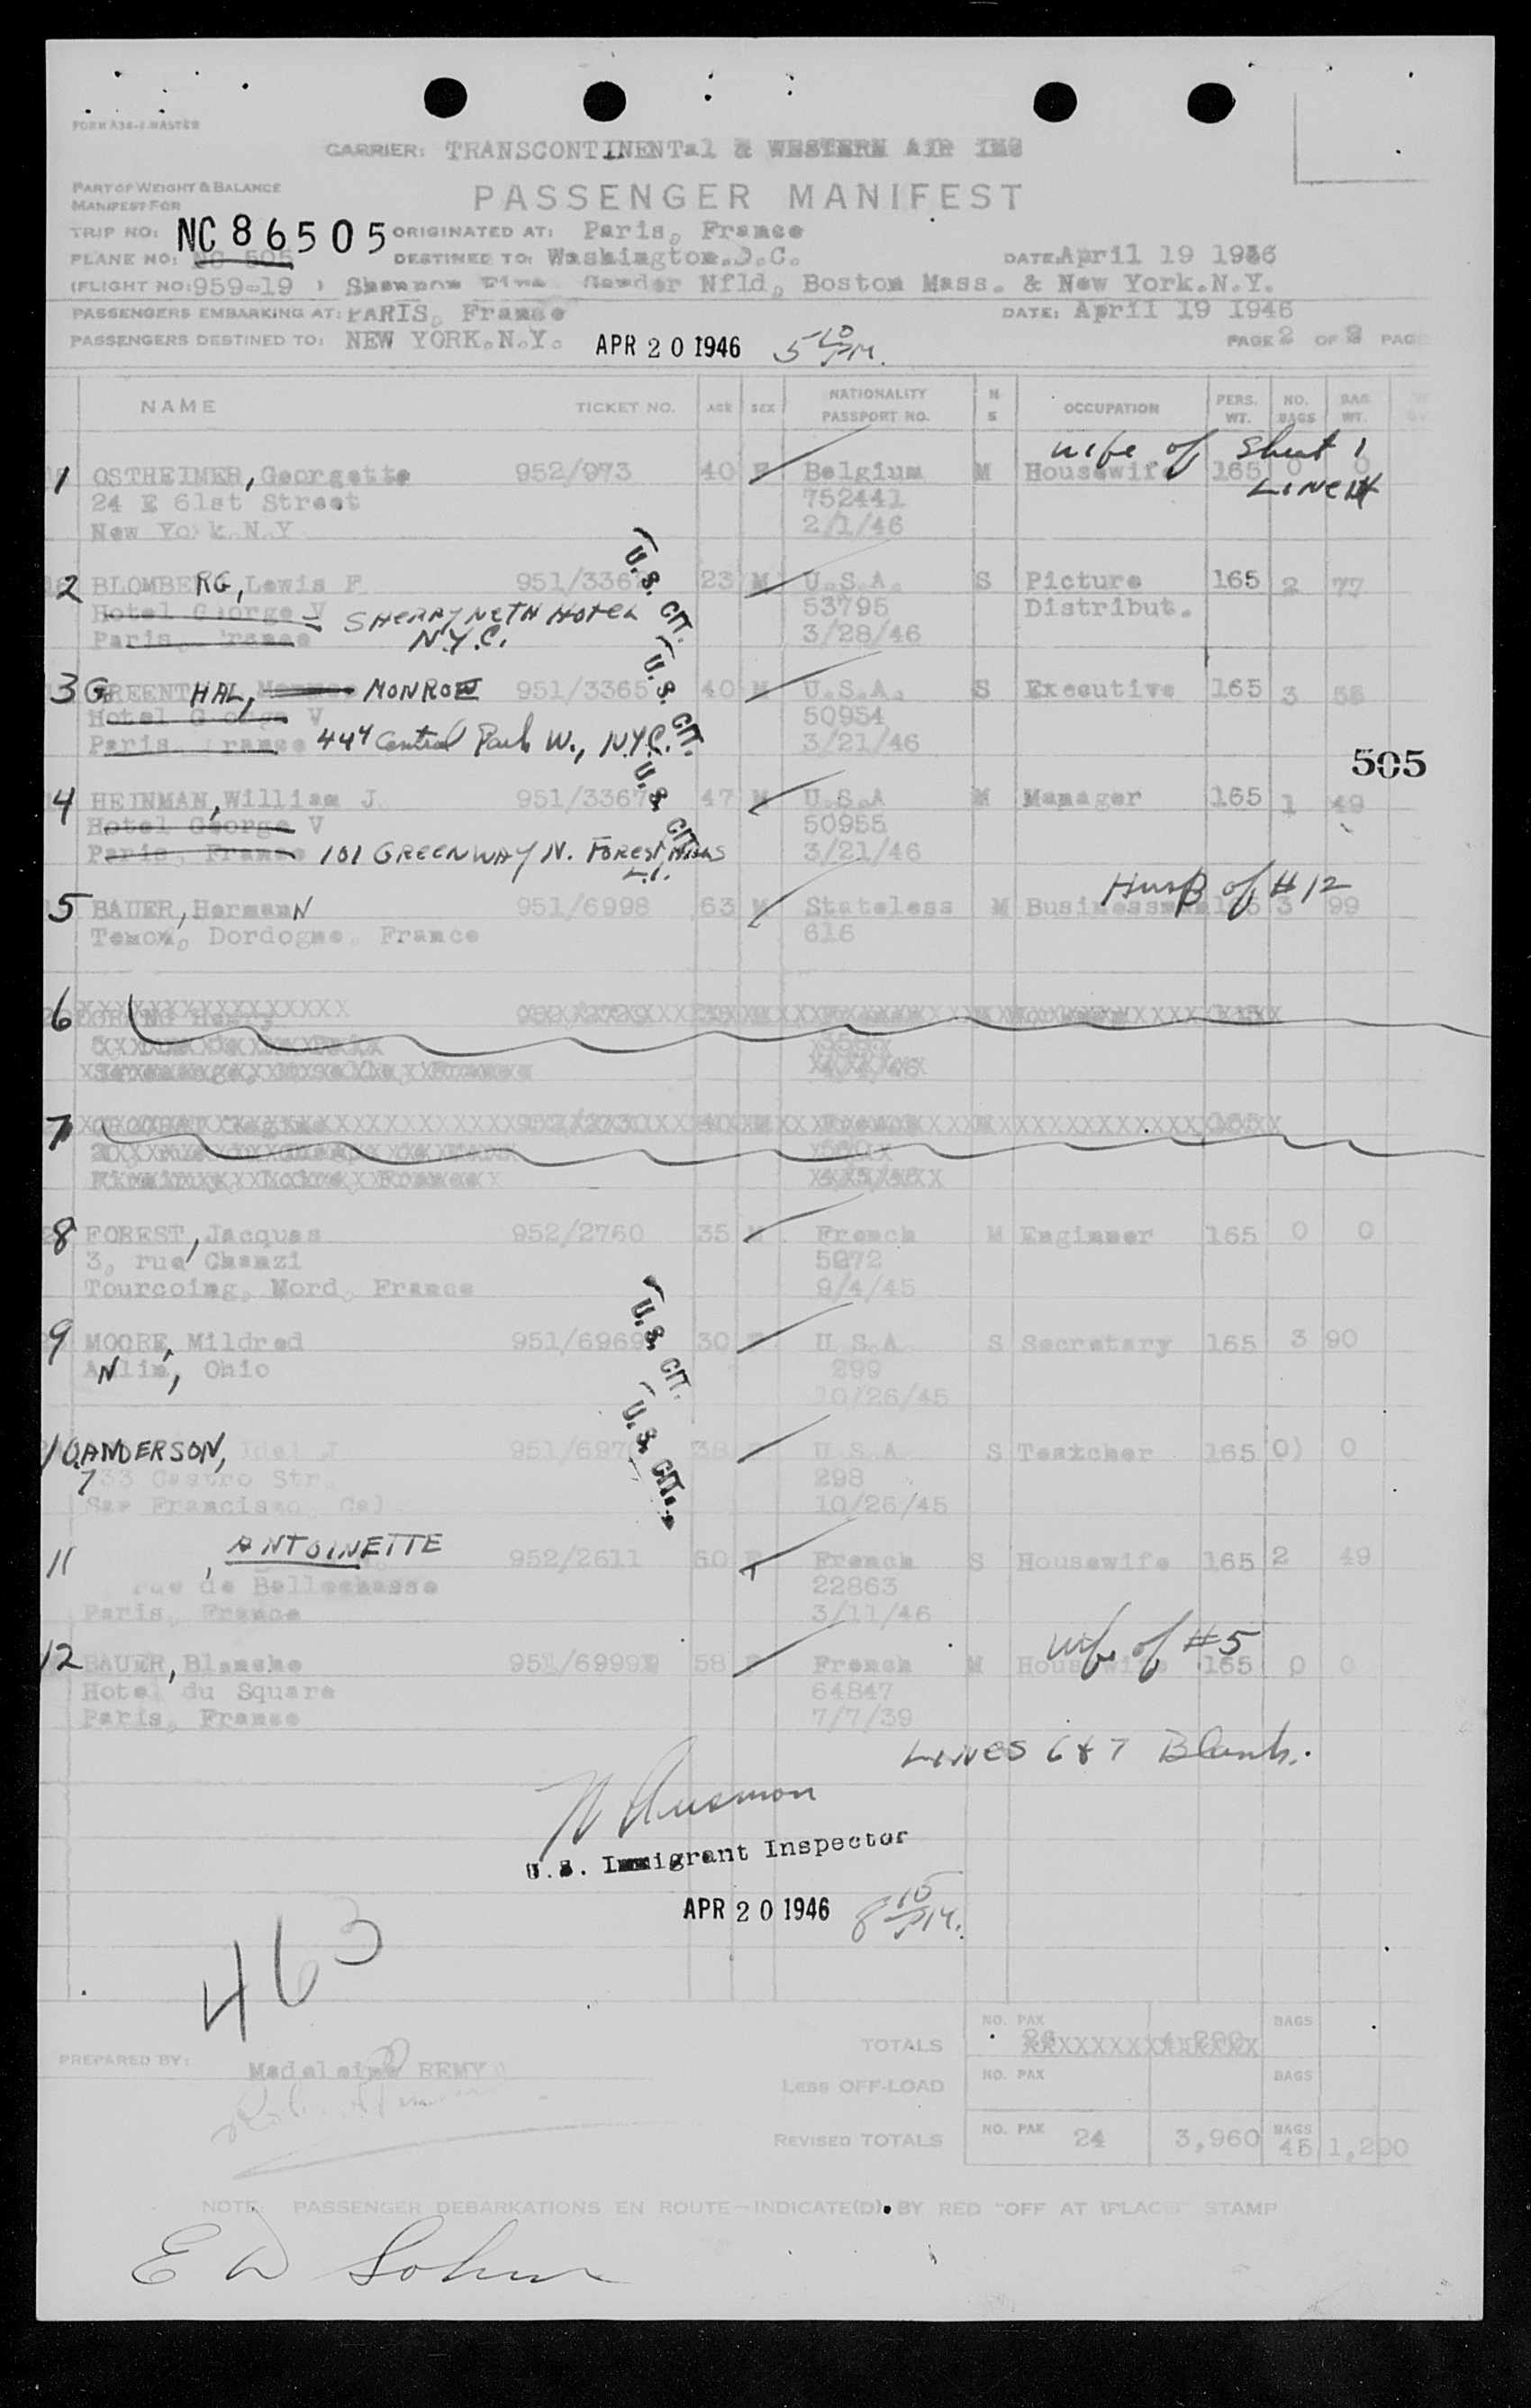 FORM A36-2 MASTER
CARRIER: TRANSCONTINENTal & WESTERN AIR INC
PART OF WEIGHT & BALANCE
MANIFEST FOR
PASSENGER MANIFEST
TRIP NO: NC 86505 ORIGINATED AT: Paris, France
PLANE NO: NC 505 DESTINED TO: Washington.D.C. DATE: April 19 1946
(FLIGHT NO: 959-19 ) Shannon Gander Nfld, Boston Mass. & New York.N.Y.
PASSENGERS EMBARKING AT: PARIS, France DATE: April 19 1946
PASSENGERS DESTINED TO: NEW YORK.N.Y. APR 20 1946 5 10 PM. PAGE 2 OF 2 PAG
NAME TICKET NO. AGE SEX NATIONALITY PASSPORT NO. M S OCCUPATION PERS. WT. NO. BAGS BAG WT.
wife of Sheet 1
1 OSTHEIMER, Georgette 952/973 40 F Belgium M Housewife 165 0 0
LINE 14
24 E 61st Street 752441
New York.N.Y 2/1/46
2 BLOMBERG, Lewis F 951/336 23 M U.S.A. S Picture 165 2 77
(U.S. CIT.
Hotel George V SHERRY NETH HOTEL 53795 Distribut.
Paris, France N.Y.C. 3/28/46
3 GREENTHAL, MONROE 951/3365 40 M U.S.A. S Executive 165 3 55
(U.S. CIT.
Hotel George V 50954
Paris, France 444 Central Park W., N.Y.C. 3/21/46
505
4 HEINMAN, William J. 951/3367 47 M U.S.A M Manager 165 1 49
U.S. CIT.
Hotel George V 50955
Paris, France 101 GREENWAY N. FOREST HILLS 3/21/46
L.I.
Husb of #12
5 BAUER, HermanN 951/6998 63 M Stateless M Businessman 165 3 99
Dordogne, France 616
6
7
8 FOREST, Jacques 952/2760 35 M French M Enginner 165 0 0
3, rue Chanzi 5972
Tourcoing, Nord, France 9/4/45
9 MOORE, Mildred 951/6969 30 F U.S.A. S Secretary 165 3 90
(U.S. CIT.
Ohio 299
10/26/45
10 ANDERSON, Idel J 951/697 38 U.S.A S Teatcher 165 0) 0
(U.S. CIT.
733 Castro Str. 298
San Francisco, Cal 10/26/45
11 , ANTOINETTE 952/2611 60 F French S Housewife 165 2 49
rue de Bellechasse 22863
Paris, France 3/11/46
wife of #5
12 BAUER, Blanche 951/6999 58 F French M Housewife 165 0 0
Hotel du Square 64847
Paris, France 7/7/39
LINES 6 & 7 Blank.
U.S. Immigrant Inspector
APR 20 1946 8 15 PM.
463
TOTALS NO. PAX BAGS
PREPARED BY: Madeleine REMY
Less OFF-LOAD NO. PAX BAGS
REVISED TOTALS NO. PAX 24 3,960 BAGS 45 1,200
NOTE: PASSENGER DEBARKATIONS EN ROUTE—INDICATE(D) BY RED "OFF AT (PLACE)" STAMP